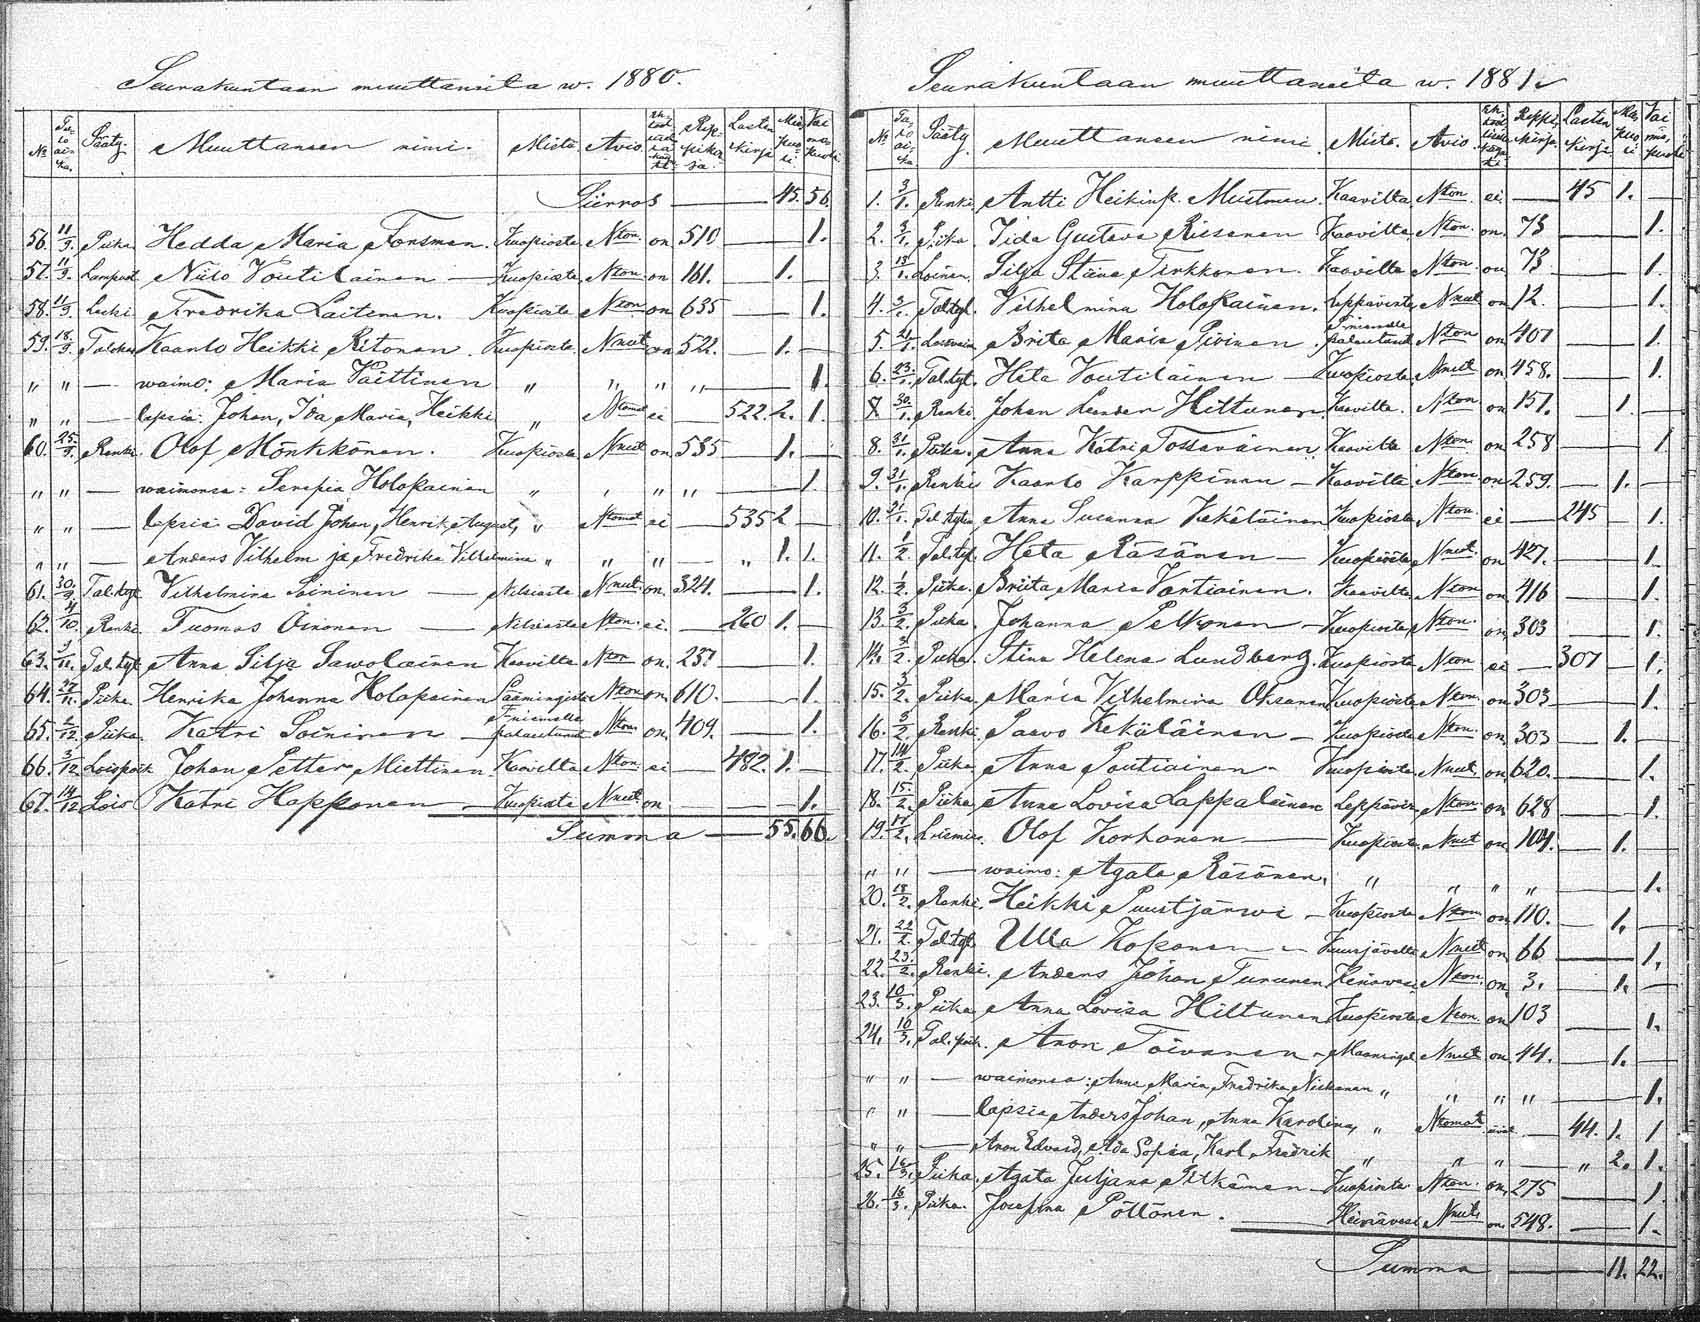 Seurakuntaan muuttaneita w. 1880.
№ Tuloaika. Sääty. Muuttaneen nimi. Mistä. Avio. Rippikirja. Lastenkirja Miespuoli Vaimopuoli
Siirros — 45. 56.
56. 11/9. Piika Hedda Maria Forsman. Kuopiosta Nton. on 510 — 1.
57. 11/9. Niilo Voutilainen — Kuopiosta Nton on 161. — 1. —
58. 11/9. Leski Fredrika Laitinen. Kuopiosta Nton on 635 — 1.
59. 18/9. Kaarlo Heikki Ritonen. Kuopiosta Nnut on 522. — 1. —
„ „ — waimo: Maria Väittinen „ „ „ „ — 1.
„ „ — lapsia: Johan, Ida Maria, Heikki „ Ntomat ei — 522. 2. 1.
60. 25/9. Renki. Olof Mönkkönen. Kuopiosta Nnut on 535 — 1. —
„ „ — waimonsa: Serafia Holopainen „ „ „ „ — 1.
„ „ — lapsia David Johan, Henrik August, „ Ntomat ei — 535 2 —
„ „ — Anders Vilhelm ja Fredrika Vilhelmina „ „ „ — „ 1. 1.
61. 30/9. Tal.tyt Vilhelmina Soininen — Nilsiästä Nnut. on. 324. — 1.
62. 4/10. Renki Tuomas Oinonen — Nilsiästä Nton. ei. — 260 1. —
63. Tal.tyt Anna Silja Sawolainen Kaavilta Nton on. 237 — 1.
64. Piika Henrika Johanna Holopainen Säämingistä Nton on. 610. — 1.
65. 2/12. Piika Katri Soininen — palautunut Nton. on. 409. — 1.
66. 3/12 Loispoik Johan Petter Miettinen Kaavilta Nton. ei — 482. 1. —
67. 14/12 Lois Katri Happonen — Kuopiosta Nnut on — 1.
Summa — 55. 66.
Seurakuntaan muuttaneita w. 1881.
№ Tuloaika Sääty. Muuttaneen nimi. Mistä. Avio. Rippikirja. Lastenkirja Miespuoli Vaimopuoli
1. 3/1. Renki. Antti Heikinp. Mustonen. Kaavilta Nton. ei. — 45 1. —
2. 3/1. Piika. Iida Gustava Riisanen Kaavilta Nton. on. 73 — 1.
3. 13/1. Loinen. Silja Stina Tirkkonen. Kaavilta Nton. on 73 — 1.
4. Tal.tyt. Vilhelmina Holopainen. Leppävirta Nnut on 12. — 1.
5. Brita Maria Piirinen. palautunut Nton on 401 — 1.
6. 23/1. Tal.tyt. Heta Voutilainen — Kuopiosta Nnut on 458. — 1.
7 30/1. Renki Johan Leander Hiltunen Kaavilta. Nton on 151. — 1. —
8. 31/1. Piika. Anna Katri Tossavainen Kaavilta Nton. on 258 — 1
9. 31/1. Renki Kaarlo Karppinen — Kaavilta Nton. on 259. — 1. —
10. Tal.tytär Anna Susanna Kekäläinen Kuopiosta Nton. ei — 245 — 1.
11. 1/2. Tal.tyt. Heta Räsänen — Kuopiosta Nnut. on 427. — 1.
12. 1/2. Piika. Briita Maria Vartiainen. Kaavilta Nton. on 416 — 1.
13. 3/2. Piika. Johanna Pelkonen — Kuopiosta Nton. on 303 — 1.
14. 3/2. Piika. Stina Helena Lundberg. Kuopiosta Nton ei — 307 — 1.
15. 3/2. Piika. Maria Vilhelmina Oksanen Kuopiosta Nton. on 303 — 1.
16. 3/2. Renki. Paavo Kekäläinen — Kuopiosta Nton on. 303 — 1. —
17. 14/2. Piika. Anna Poutiainen — Kuopiosta Nnut. on 620. — 1.
18. 15/2. Piika Anna Lovisa Lappalainen Leppävir Nton. on 628 — 1.
19. 17/2. Olof Korhonen — Kuopiosta Nnut on 104. — 1. —
„ „ — waimo: Agata Räsänen, „ „ „ „ — 1.
20. 18/2. Renki. Heikki Puustjärwi — Kuopiosta Nton on 110. — 1. —
21. 22/2. Tal.tyt. Ulla Koponen — Kuusjärvelta Nnut on 66 — 1.
22. 23/2. Renki. Anders Johan Turunen Heinävesi Nton. on. 3. — 1. —
23. 10/3. Piika Anna Lovisa Hiltunen Kuopiosta Nton. on 103 — 1.
24. 10/3. Tal.poik. Aron Toivanen — Maaningal Nnut on 44. — 1. —
„ „ — waimonsa: Anna Maria Fredrika Niskanen „ „ „ „ — 1.
„ „ — lapsia Anders Johan, Anna Karolina, „ Ntomat eivät — 44. 1. 1
„ „ — Aron Edvard, Ada Sofia, Karl Fredrik „ „ „ — „ 2. 1.
25. 16/3. Piika. Agata Juljana Pitkänen — Kuopiosta. Nton. on. 275 — 1.
26. 16/3. Piika. Josefina Pöllönen. — Heinävesi Nnut. on. 548. — 1.
Summa — 11. 22.